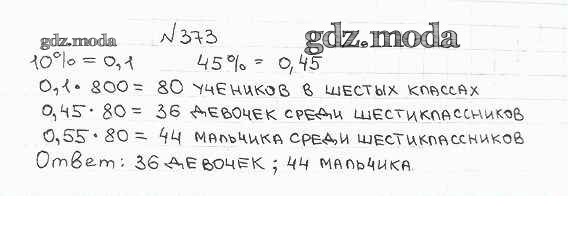 gdz.moda №373 gdz.moda
10% = 0,1 45% = 0,45
0,1·800 = 80 УЧЕНИКОВ В ШЕСТЫХ КЛАССАХ
0,45·80 = 36 ДЕВОЧЕК СРЕДИ ШЕСТИКЛАССНИКОВ
0,55·80 = 44 МАЛЬЧИКА СРЕДИ ШЕСТИКЛАССНИКОВ
Ответ: 36 ДЕВОЧЕК; 44 МАЛЬЧИКА.